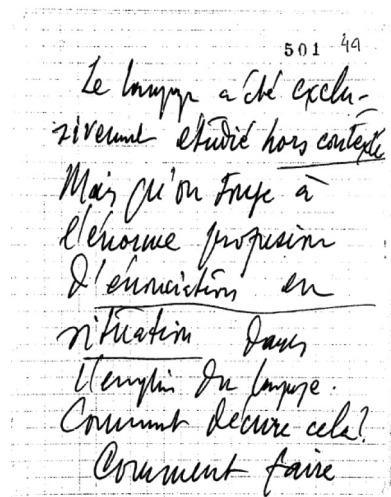 501 49
Le langage a été exclu-
sivement étudié hors contexte
Mais qu'on songe à
l'énorme profusion
d'énonciations en
situation dans
l'emploi du langage.
Comment décrire cela?
Comment faire